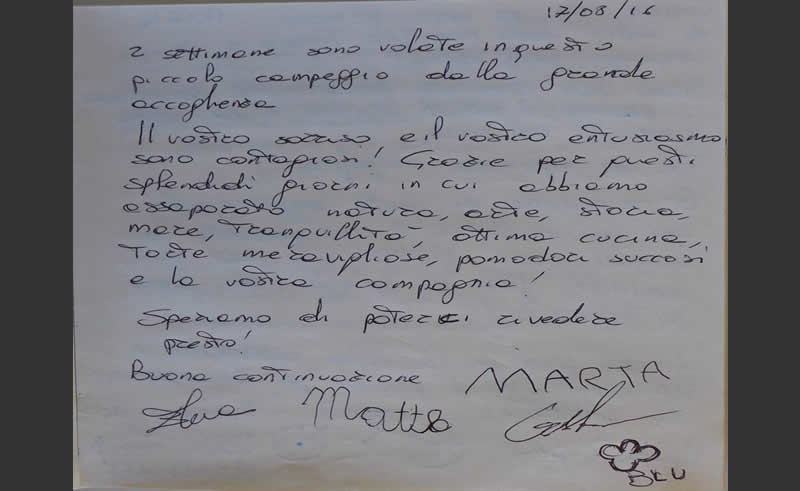 17/08/16
2 settimane sono volate in questo
piccolo campeggio dalla grande
accoglienza
Il vostro sorriso, e il vostro entusiasmo
sono contagiosi! Grazie per questi
splendidi giorni in cui abbiamo
assaporato natura, arte, storia,
mare, tranquillità, ottima cucina,
torte meravigliose, pomodori succosi
e la vostra compagnia!
Speriamo di poterci rivedere
presto!
Buona continuazione MARTA
Matteo
BLU